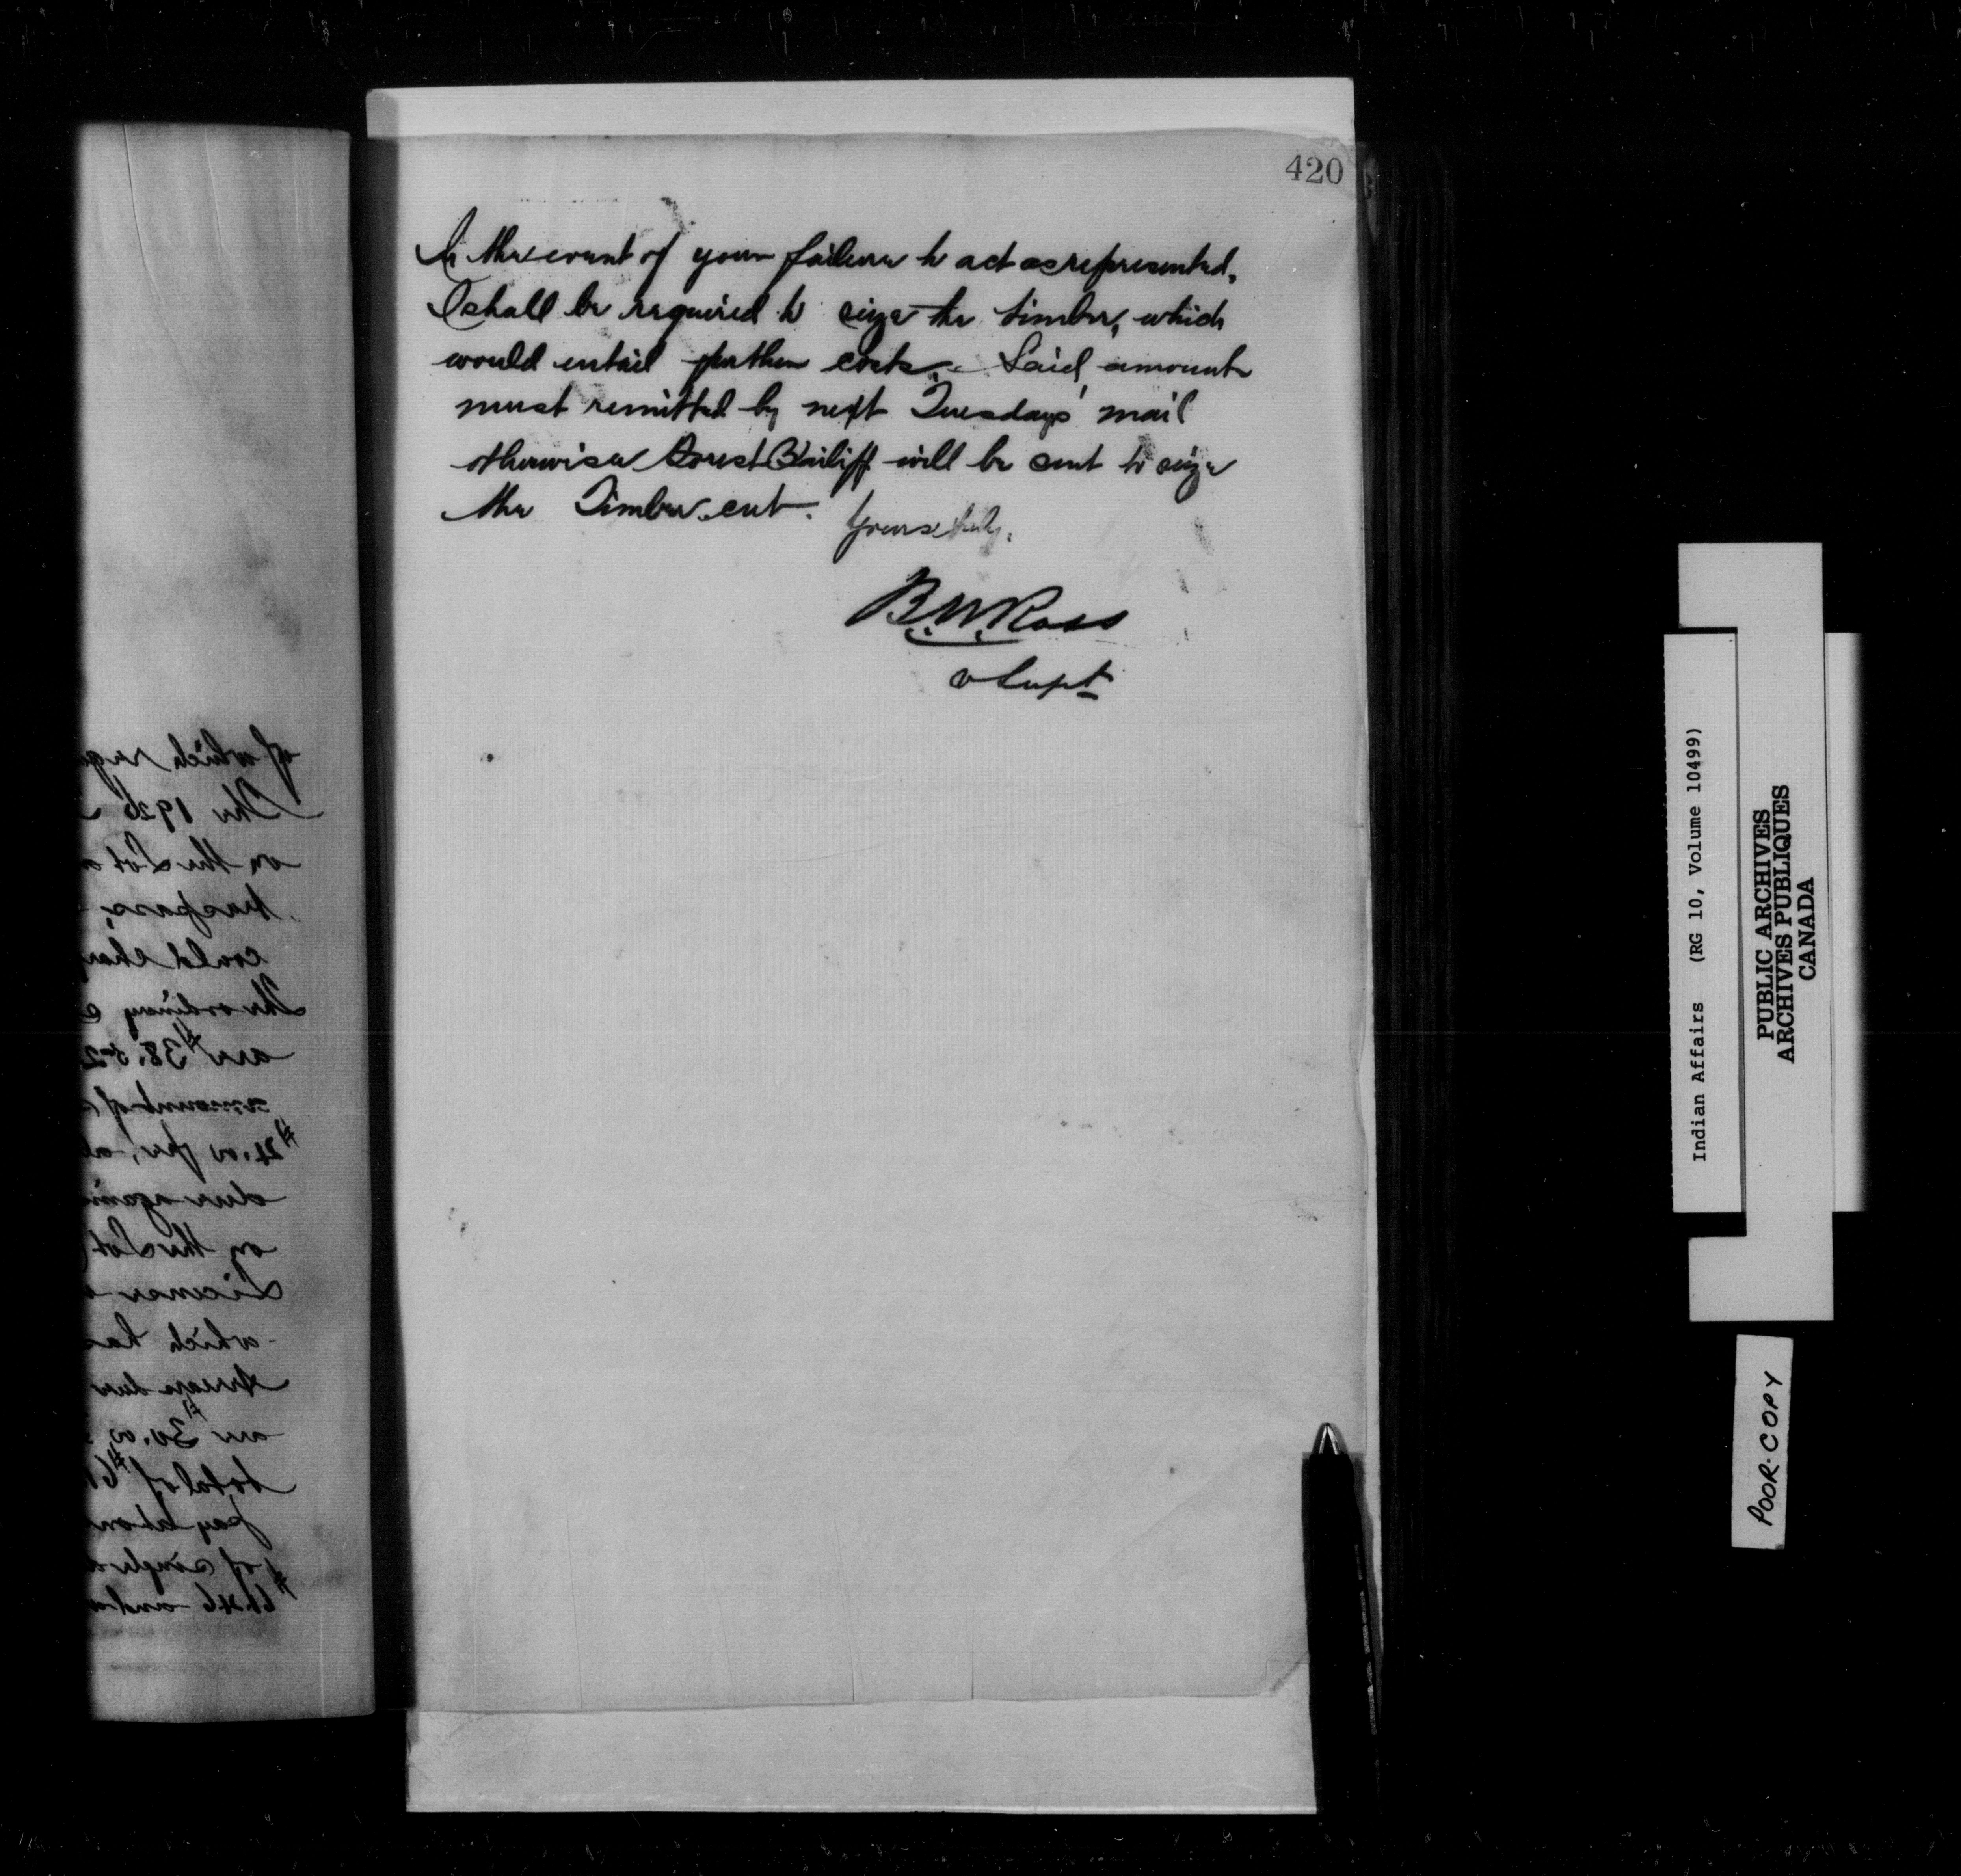 420
In the event of your failure to act as represented,
I shall be required to seize the timber, which
would entail further costs. Said amount
must remitted by next Tuesdays' mail
otherwise Bailiff will be sent to seize
the Timber cut.
Yours truly,
B.W. Ross
Supt
of which
The 1926
on the Lot
trespass,
could
The ordinary
are $38.52
amount of
$21.00 per,
due
on the Lot
License
which has
Arrears due
are 30.00
total of $6
pay
of single
$61.46 and
Indian Affairs (RG 10, Volume 10499)
PUBLIC ARCHIVES
ARCHIVES PUBLIQUES
CANADA
POOR COPY